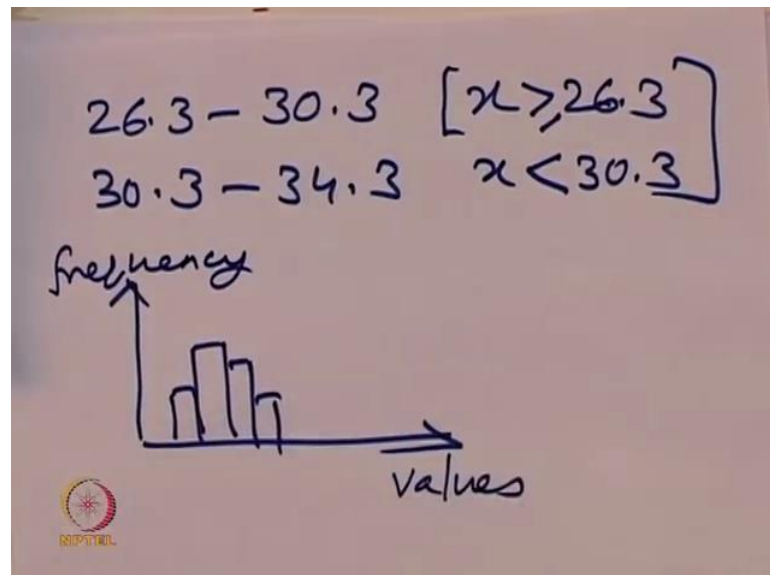 26.3 – 30.3 [x ≥ 26.3
30.3 – 34.3 x < 30.3]
frequency
values
NPTEL